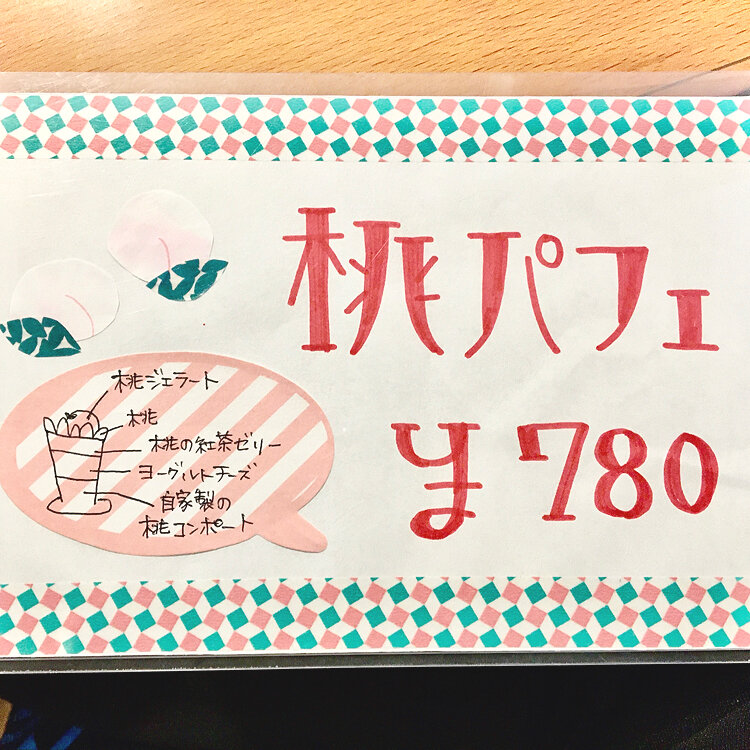 桃パフェ
¥780
桃ジェラート
桃
桃の紅茶ゼリー
ヨーグルトチーズ
自家製の
桃コンポート